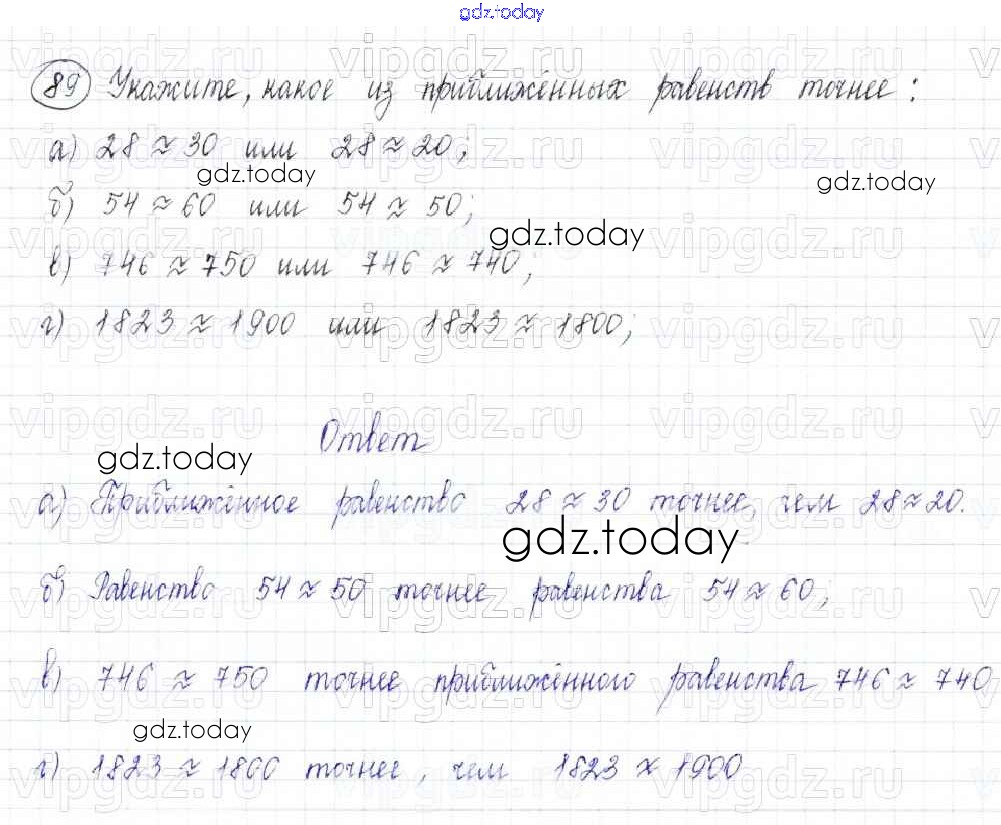 gdz.today
89 Укажите, какое из приближённых равенств точнее:
а) 28 ≈ 30 или 28 ≈ 20;
gdz.today gdz.today
б) 54 ≈ 60 или 54 ≈ 50;
gdz.today
в) 746 ≈ 750 или 746 ≈ 740;
г) 1823 ≈ 1900 или 1823 ≈ 1800;
vipgdz.ru vipgdz.ru vipgdz.ru
Ответ
gdz.today
а) Приближённое равенство 28 ≈ 30 точнее, чем 28 ≈ 20.
gdz.today
б) Равенство 54 ≈ 50 точнее равенства 54 ≈ 60;
в) 746 ≈ 750 точнее приближённого равенства 746 ≈ 740
gdz.today
г) 1823 ≈ 1800 точнее, чем 1823 ≈ 1900